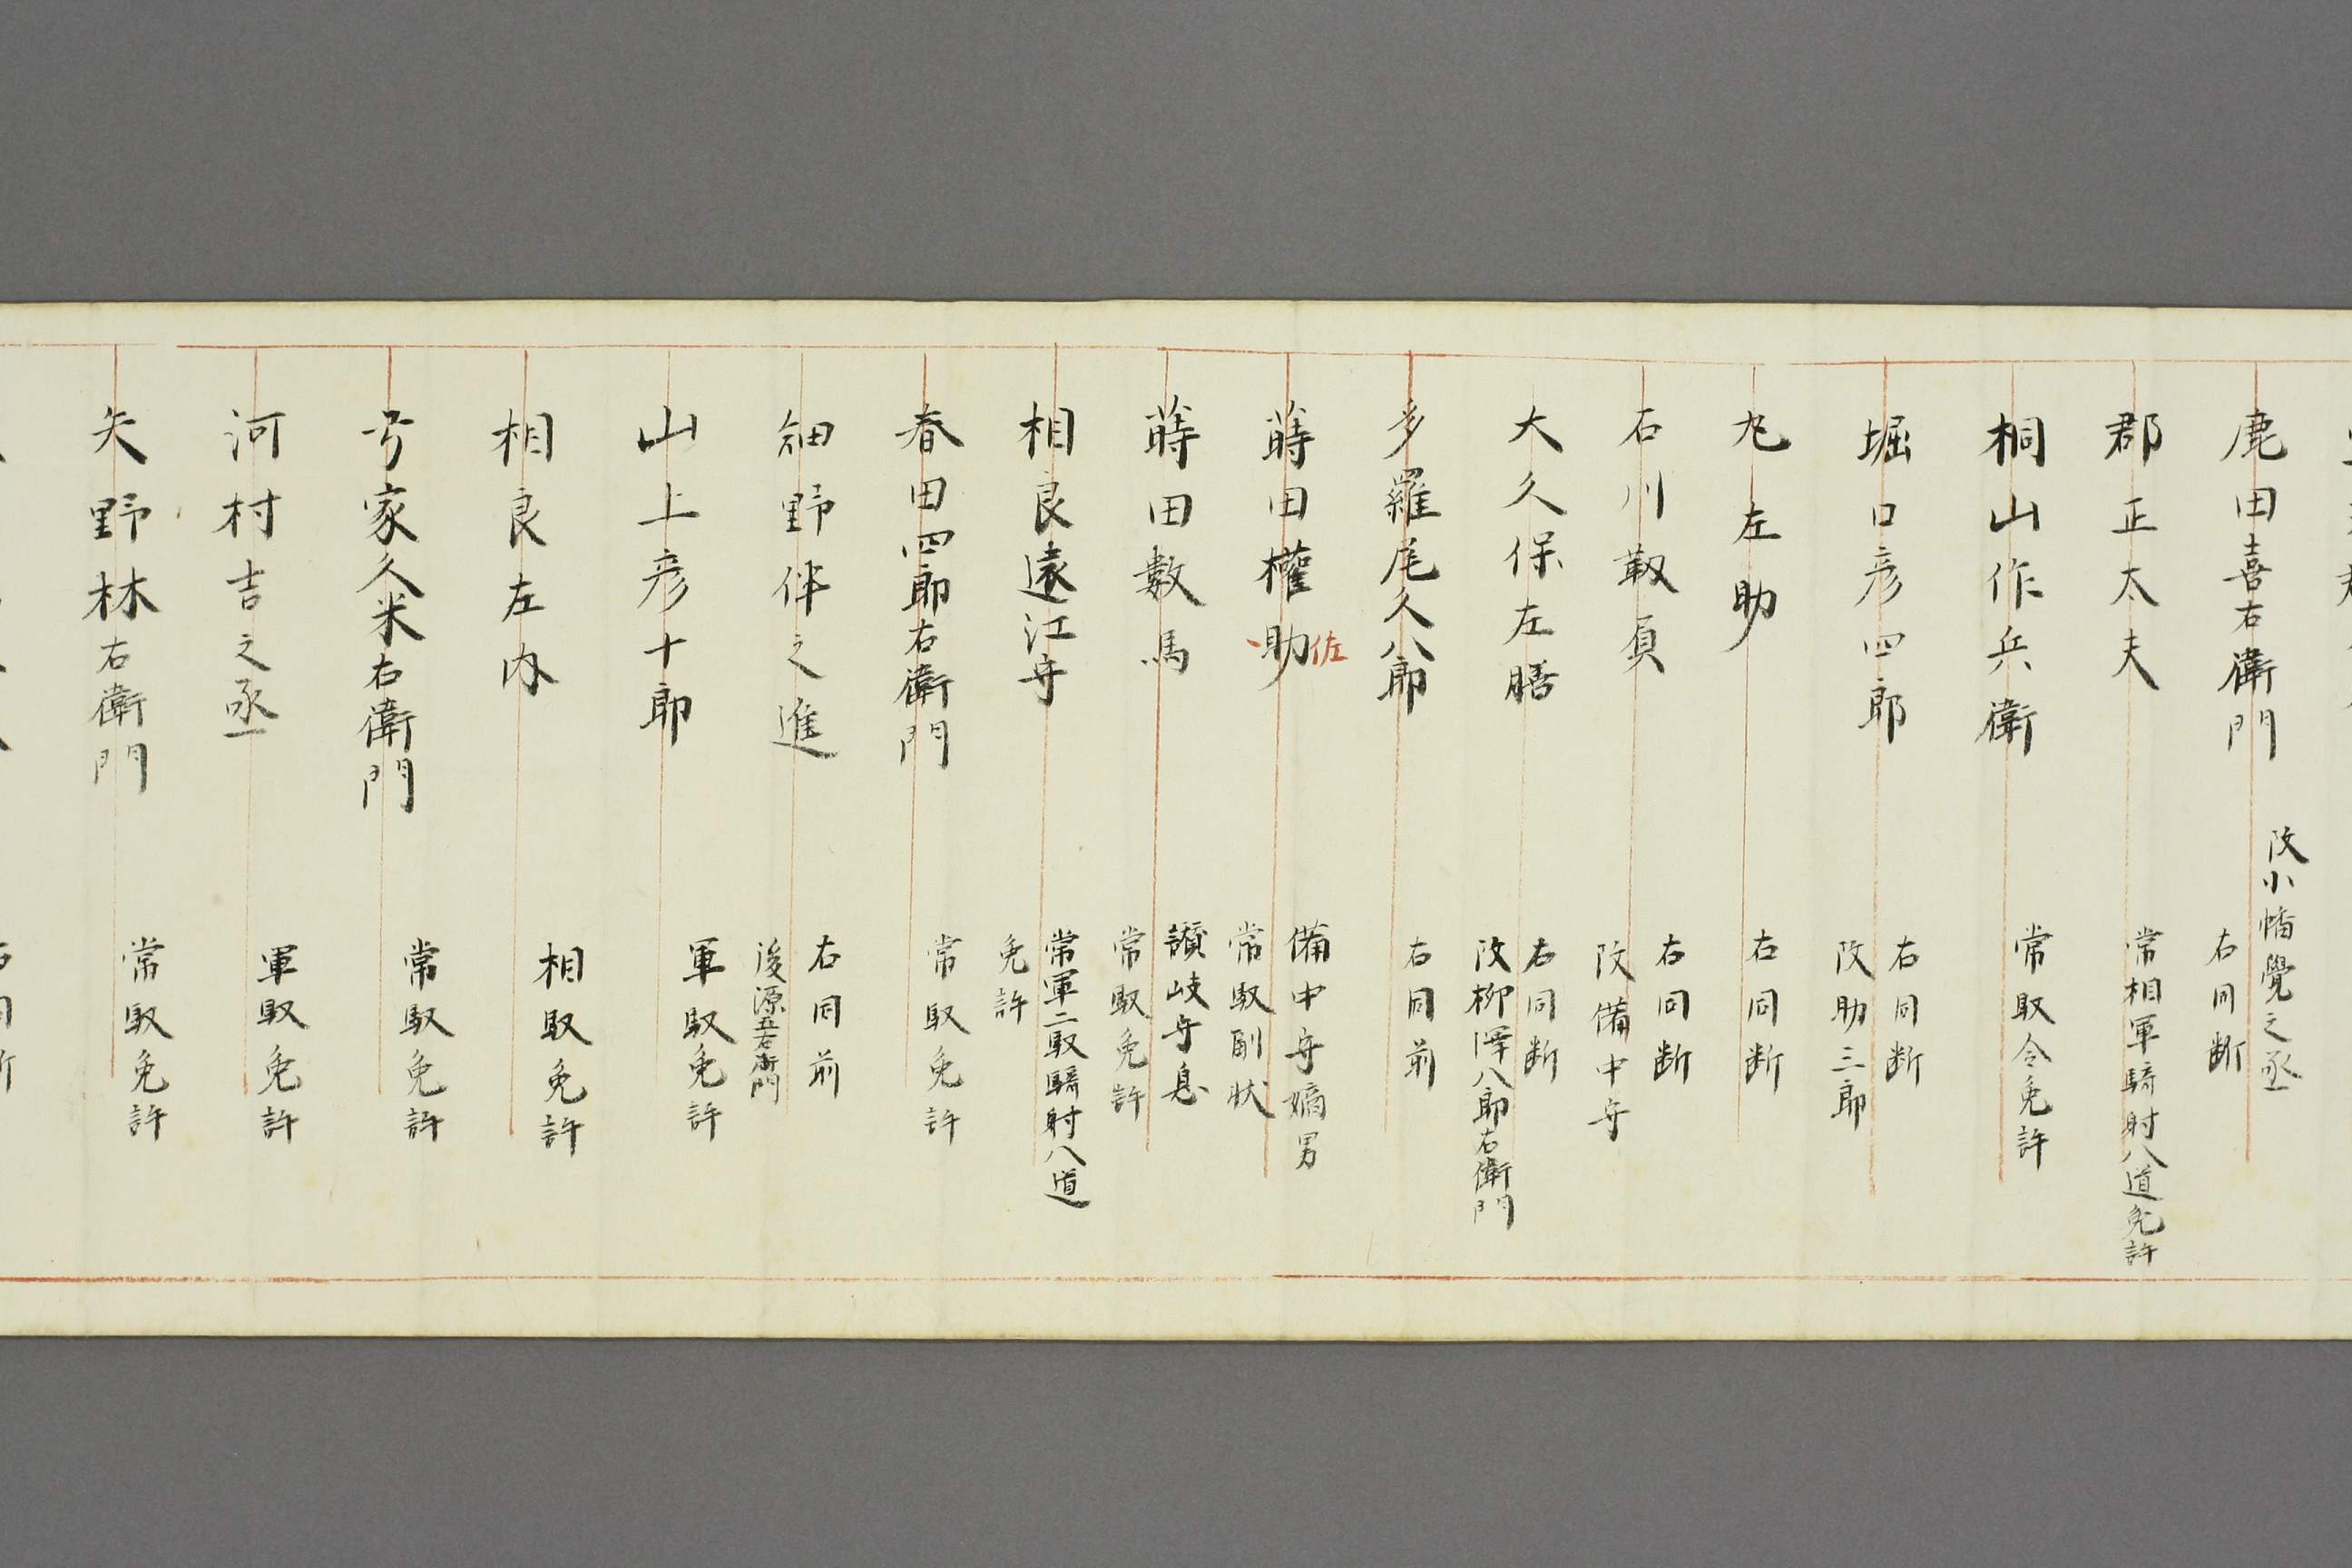 鹿田喜右衛門
改小幡覺之丞
右同断
郡正太夫
常相軍騎射八道免許
桐山作兵衛
常馭令免許
堀口彦四郎
右同断
改助三郎
丸左助
右同断
石川靱負
右同断
改備中守
大久保左膳
右同断
改柳澤八郎右衛門
多羅尾久八郎
右同前
蒔田權助
佐
備中守嫡男
常馭副状
蒔田數馬
讃岐守息
常馭免許
相良遠江守
常軍二馭騎射八道
免許
春田四郎右衛門
常馭免許
細野伴之進
右同前
後源五右衛門
山上彦十郎
軍馭免許
相良左内
相馭免許
弓家久米右衛門
常馭免許
河村吉之丞
軍馭免許
矢野林右衛門
常馭免許